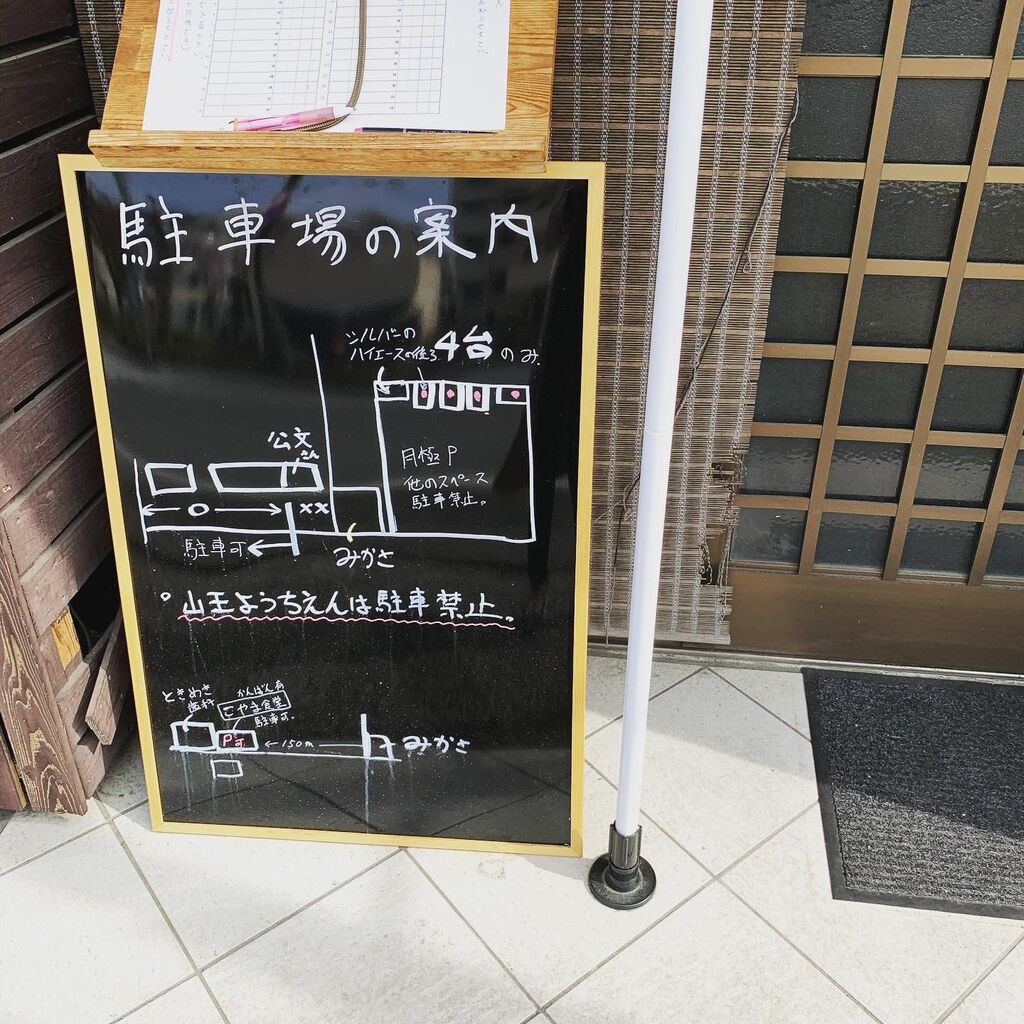 駐車場の案内
シルバーの
ハイエースの後ろ 4台のみ
公文
さん
月極P
他のスペース
駐車禁止。
○
××
駐車可
みかさ
山王ようちえんは駐車禁止。
ときめき
歯科
かんばん有
こやま食堂
駐車可。
P可
150m
みかさ